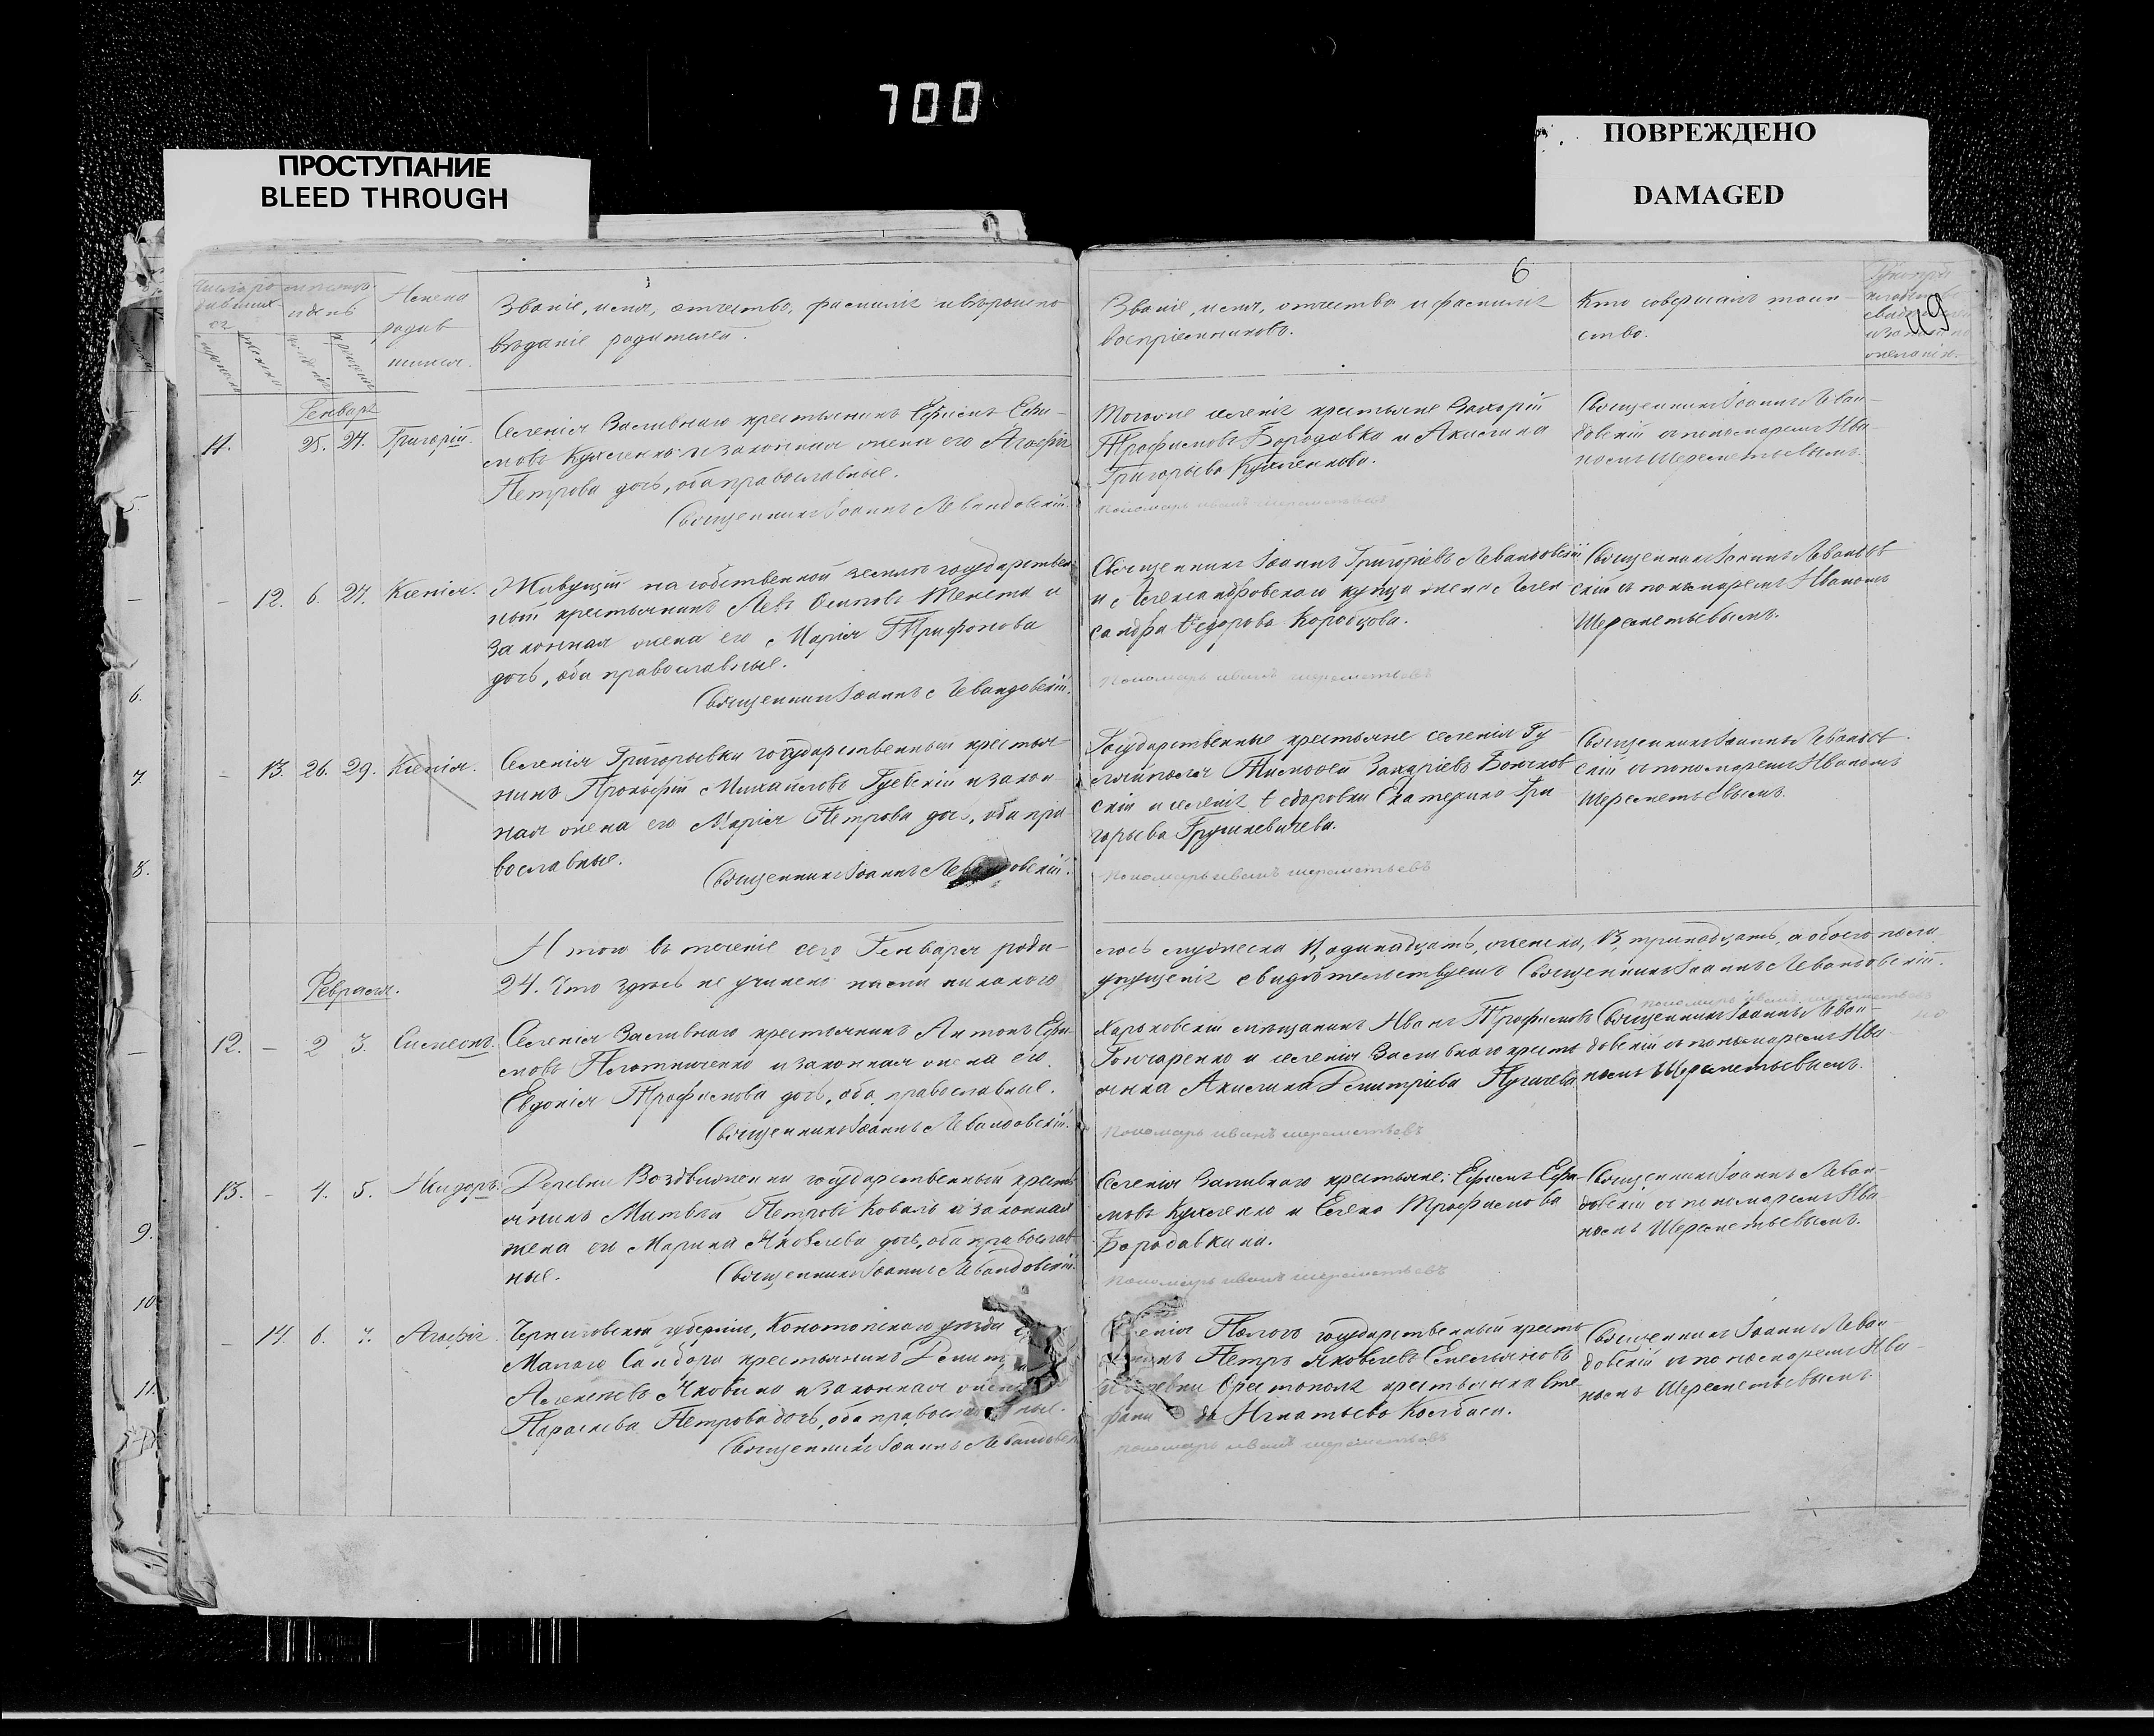 700
ПРОСТУПАНИЕ
BLEED THROUGH
ПОВРЕЖДЕНО
DAMAGED
6
49
Имена
родив
шихся.
Званіе, имя, отчество, фамилія и вѣроиспо
вѣданіе родителей.
Званіе, имя, отчество и фамилія
воспріемниковъ.
Кто совершалъ таин-
ство.
Генварь
11. 25. 27. Григорій.
Селенія Заливнаго крестьянинъ Ефимъ Ефи-
мовъ Кухленко и законная жена его Агафія
Петрова дочь, оба православные.
Священникъ Іоаннъ Левандовскій.
Тогоже селенія крестьяне Захарій
Трофимовъ Бородавка и Акилина
Григорьева Кухленкова.
Пономарь иванъ шереметьевъ
Священникъ Іоаннъ Леван-
довскій съ пономаремъ Ива
номъ Шереметьевымъ.
- 12. 6. 27. Ксенія.
Живущій на собственной землѣ государствен
ный крестьянинъ Левъ Осиповъ Тенета и
законная жена его Марія Трифонова
дочь, оба православные.
Священникъ Іоаннъ Левандовскій.
Священникъ Іоаннъ Григоріевъ Левандовскій
и Александровскаго купца жена Алек
сандра Ѳедорова Коробцова.
Пономарь иванъ шереметьевъ
Священникъ Іоаннъ Левандов
скій съ пономаремъ Иваномъ
Шереметьевымъ.
- 13. 26. 29. Ксенія.
Селенія Григорьевки государственный крестья
нинъ Прокофій Михайловъ Гуевскій и закон
ная жена его Марія Петрова дочь, оба пра
вославные.
Священникъ Іоаннъ Левандовскій.
Государственные крестьяне селенія Гу
ляйполя Тимофей Захаріевъ
скій и селенія Ѳедоровки Екатерина Гри
горьева Грушкевичева.
Пономарь иванъ шереметьевъ
Священникъ Іоаннъ Левандов
скій съ пономаремъ Иваномъ
Шереметьевымъ.
Итого въ теченіе сего Генваря роди-
лось мужеска 11, одинадцать, женска, 13, тринадцать, а обоего пола
24. Что здѣсь не учинено нами никакого
упущенія свидѣтельствуемъ Священникъ Іоаннъ Левандовскій.
пономарь иванъ шереметьевъ
Февраля.
12. - 2 3. Симеонъ.
Селенія Заливнаго крестьянинъ Антонъ Ефи-
мовъ Плотниченко и законная жена его
Евдокія Трофимова дочь, оба православные.
Священникъ Іоаннъ Левандовскій.
Харьковскій мѣщанинъ Иванъ Трофимовъ
Гончаренко и селенія Заливнаго кресть
янка Акилина Димитріева Пугачева
Пономарь иванъ шереметьевъ
Священникъ Іоаннъ Леван-
довскій съ пономаремъ Ива
номъ Шереметьевымъ.
13. - 4. 5. Исидоръ.
Деревни Воздвиженки государственный кресть
янинъ Матвѣй Петровъ Коваль и законная
жена его Марина Яковлева дочь, оба православ
ные.
Священникъ Іоаннъ Левандовскій.
Селенія Заливнаго крестьяне: Ефимъ Ефи-
мовъ Кухленко и Елена Трофимова
Бородавкина.
Пономарь иванъ шереметьевъ
Священникъ Іоаннъ Леван-
довскій съ пономаремъ Ива
номъ Шереметьевымъ.
- 14. 6. 7. Агафія
Черниговской губерніи, Конотопскаго уѣзда
Малаго Самбора крестьянинъ
Алексѣевъ и законная
Параскева Петрова дочь, оба православные.
Священникъ Іоаннъ Левандовскій
Пологъ государственный кресть
Петръ Яковлевъ Емельяновъ
Орестополя крестьянка Сте
фани да Игнатьева Колбаси.
Пономарь иванъ шереметьевъ
Священникъ Іоаннъ Леван-
довскій съ пономаремъ Ива-
номъ Шереметьевымъ.
5
6.
7
8.
9.
10.
11.